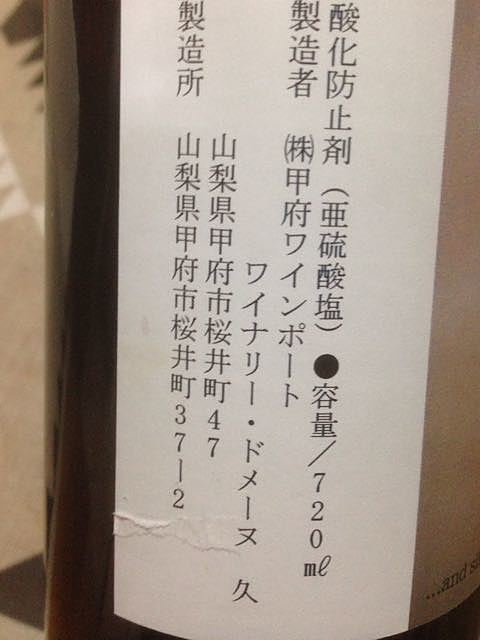 酸化防止剤（亜硫酸塩）●容量／720㎖
製造者 ㈱甲府ワインポート
ワイナリー・ドメーヌ 久
山梨県甲府市桜井町47
製造所 山梨県甲府市桜井町37ー2
...and